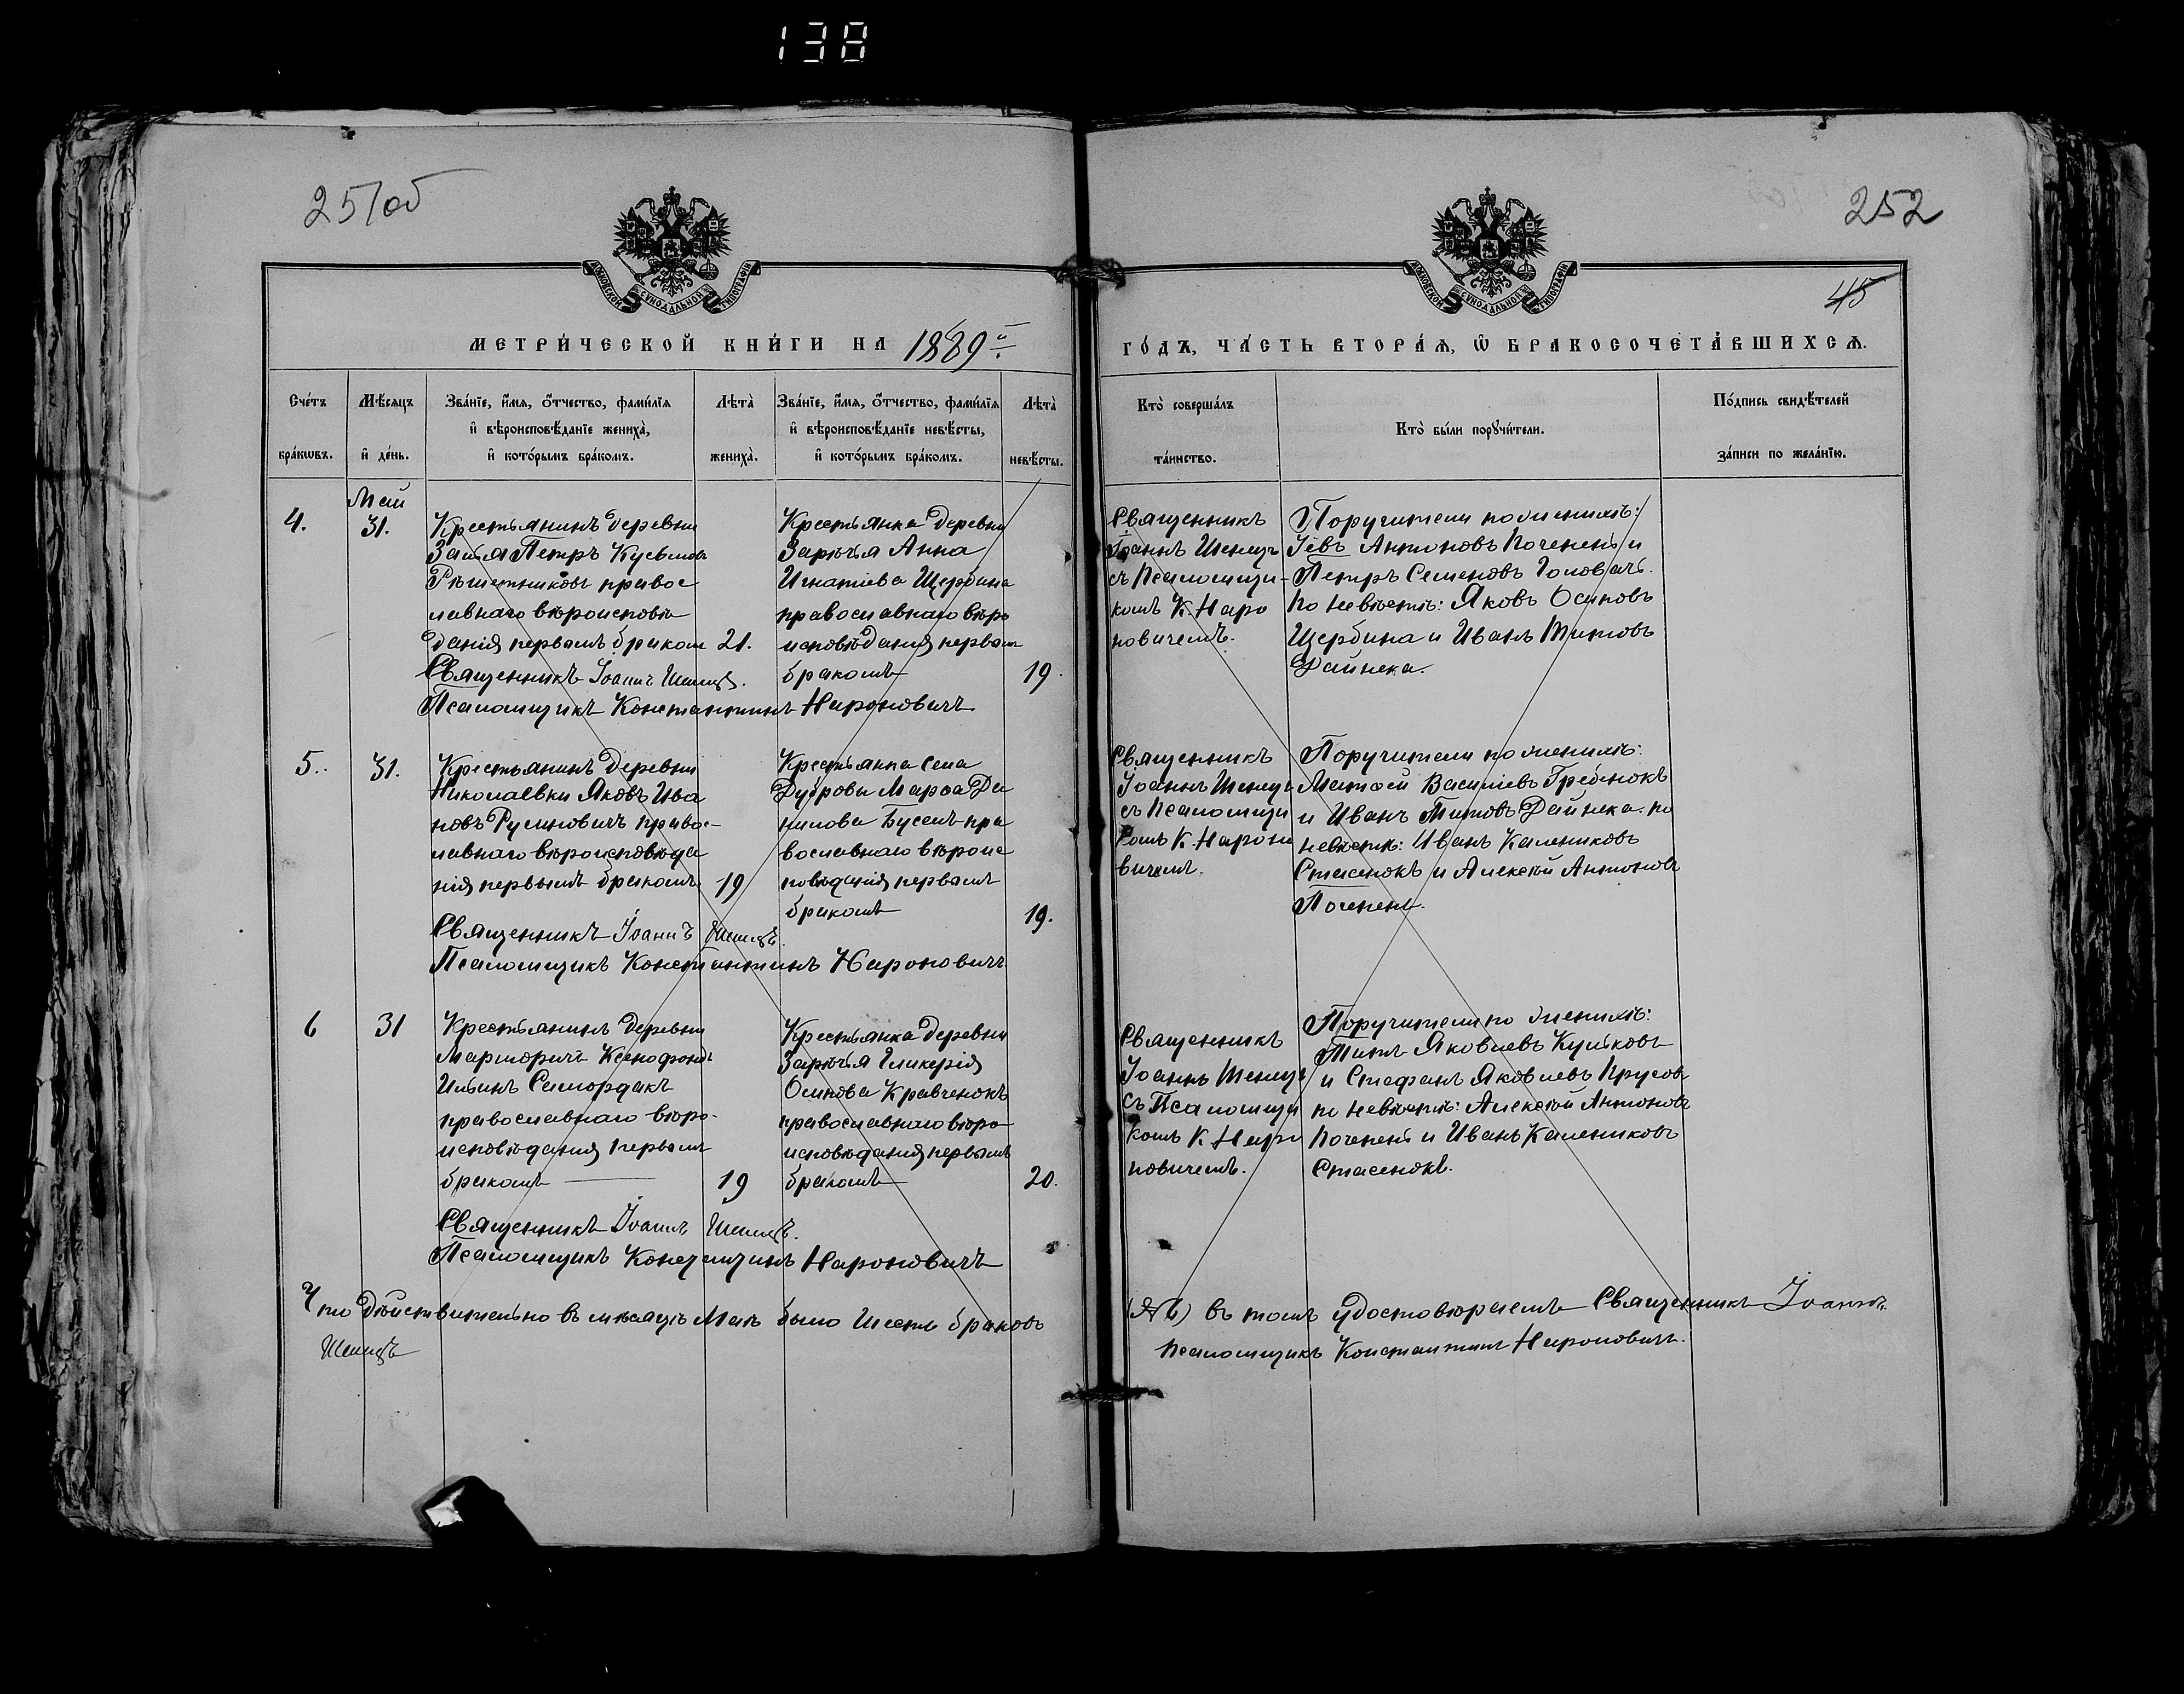 138
251об
252
45
МОСКОВСКОЙ СѴНОДАЛЬНОЙ ТИПОГРАФІИ
МОСКОВСКОЙ СѴНОДАЛЬНОЙ ТИПОГРАФІИ
МЕТРИ́ЧЕСКОЙ КНИ́ГИ НА 1889й.
ГО́ДЪ, ЧА́СТЬ ВТОРА́Я, Ѡ БРАКОСОЧЕТА́ВШИХСЯ.
Сче́тъ
бра́кѡвъ.
Мѣ́сяцъ
и҆ де́нь.
Зва́нїе, и҆́мя, ѻ҆́тчество, фами́лїя
и҆ вѣроисповѣ́данїе жениха̀,
и҆ кото́рымъ бра́комъ.
Лѣта̀
жениха̀.
Зва́нїе, и҆́мя, ѻ҆́тчество, фами́лїя
и҆ вѣроисповѣ́данїе невѣ́сты,
и҆ кото́рымъ бра́комъ.
Лѣта̀
невѣ́сты.
Кто̀ соверша́лъ
та́инство.
Кто̀ бы́ли порꙋчи́тели.
По́дпись свидѣ́телей
за́писи по жела́нїю.
4.
Май
31.
Крестьянинъ деревни
Петръ Кузьмовъ
Рѣшетниковъ правос
лавнаго вѣроисповѣ
данія первымъ браком
21.
Священникъ Іоаннъ Шеметъ.
Псаломщикъ Константинъ Нароновичъ.
Крестьянка деревни
Зарѣчья Анна
Игнатіева Щербина
православнаго вѣро
исповѣданія первым
бракомъ
19.
Священникъ
Іоаннъ Шеметъ
съ Псаломщи-
комъ К. Наро
новичемъ.
Поручители по женихѣ:
Іевъ Антоновъ Почепень и
Петръ Семеновъ Головачъ.
По невѣстѣ: Яковъ Осиповъ
Щербина и Иванъ Титовъ
Дайнека.
5..
31.
Крестьянинъ деревни
Николаевки Яковъ Ива
новъ Русиновичъ правос-
лавнаго вѣроисповѣда
нія первымъ бракомъ.
19
Священникъ Іоаннъ Шеметъ.
Псаломщикъ Константинъ Нароновичъ
Крестьянка села
Дубровы Марѳа Да
нилова Буселъ пра
вославнаго вѣроис
повѣданія первымъ
бракомъ
19.
Священникъ
Іоаннъ Шеметъ
съ Псаломщи
комъ К. Нароно
вичемъ.
Поручители по женихѣ:
Матѳей Василіевъ Гребенокъ
и Иванъ Титовъ Дайнека. по
невѣстѣ: Иванъ Калениковъ
Стасенокъ и Алексѣй Антоновъ
Почепень.
6
31
Крестьянинъ деревни
Мартовичъ Ксенофонтъ
Ильинъ Самордакъ
православнаго вѣро-
исповѣданія первымъ
бракомъ
19
Священникъ Іоаннъ Шеметъ.
Псаломщикъ Константинъ Нароновичъ
Крестьянка деревни
Зарѣчья Гликерія
Осипова Кравченокъ
православнаго вѣро-
исповѣданія первымъ
бракомъ
20.
Священникъ
Іоаннъ Шеметъ
съ Псаломщи
комъ К. Наро
новичемъ.
Поручители по женихѣ:
Титъ Яковлевъ Куликовъ
и Стефанъ Яковлевъ Прусовъ
по невѣстѣ: Алексѣй Антоновъ
Почепень и Иванъ Калениковъ
Стасенокъ.
Что дѣйствительно въ мѣсяцѣ Маѣ было шесть браковъ
(№ 6) въ томъ удостовѣряемъ Священникъ Іоаннъ
Шеметъ
Псаломщикъ Константинъ Нароновичъ.